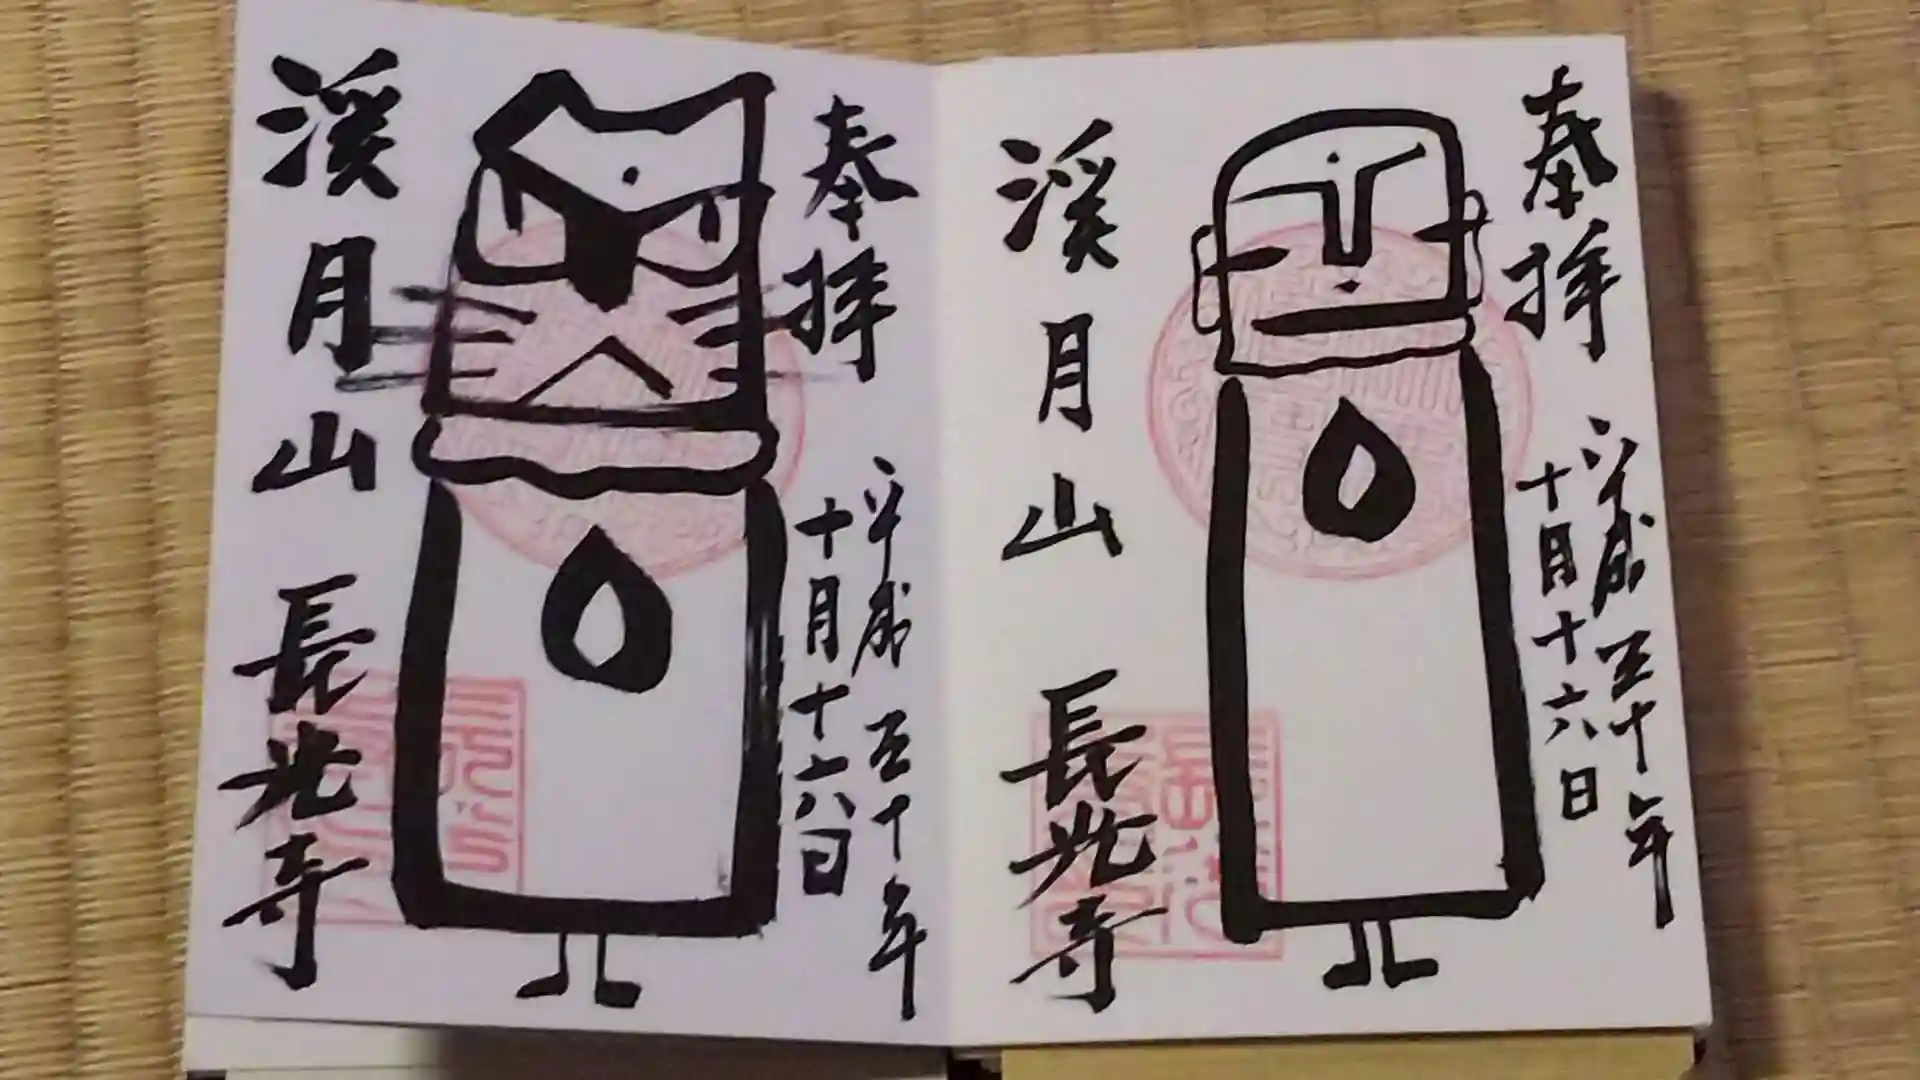 奉拝
平成三十年
十月十六日
溪月山 長光寺
奉拝
平成三十年
十月十六日
溪月山 長光寺